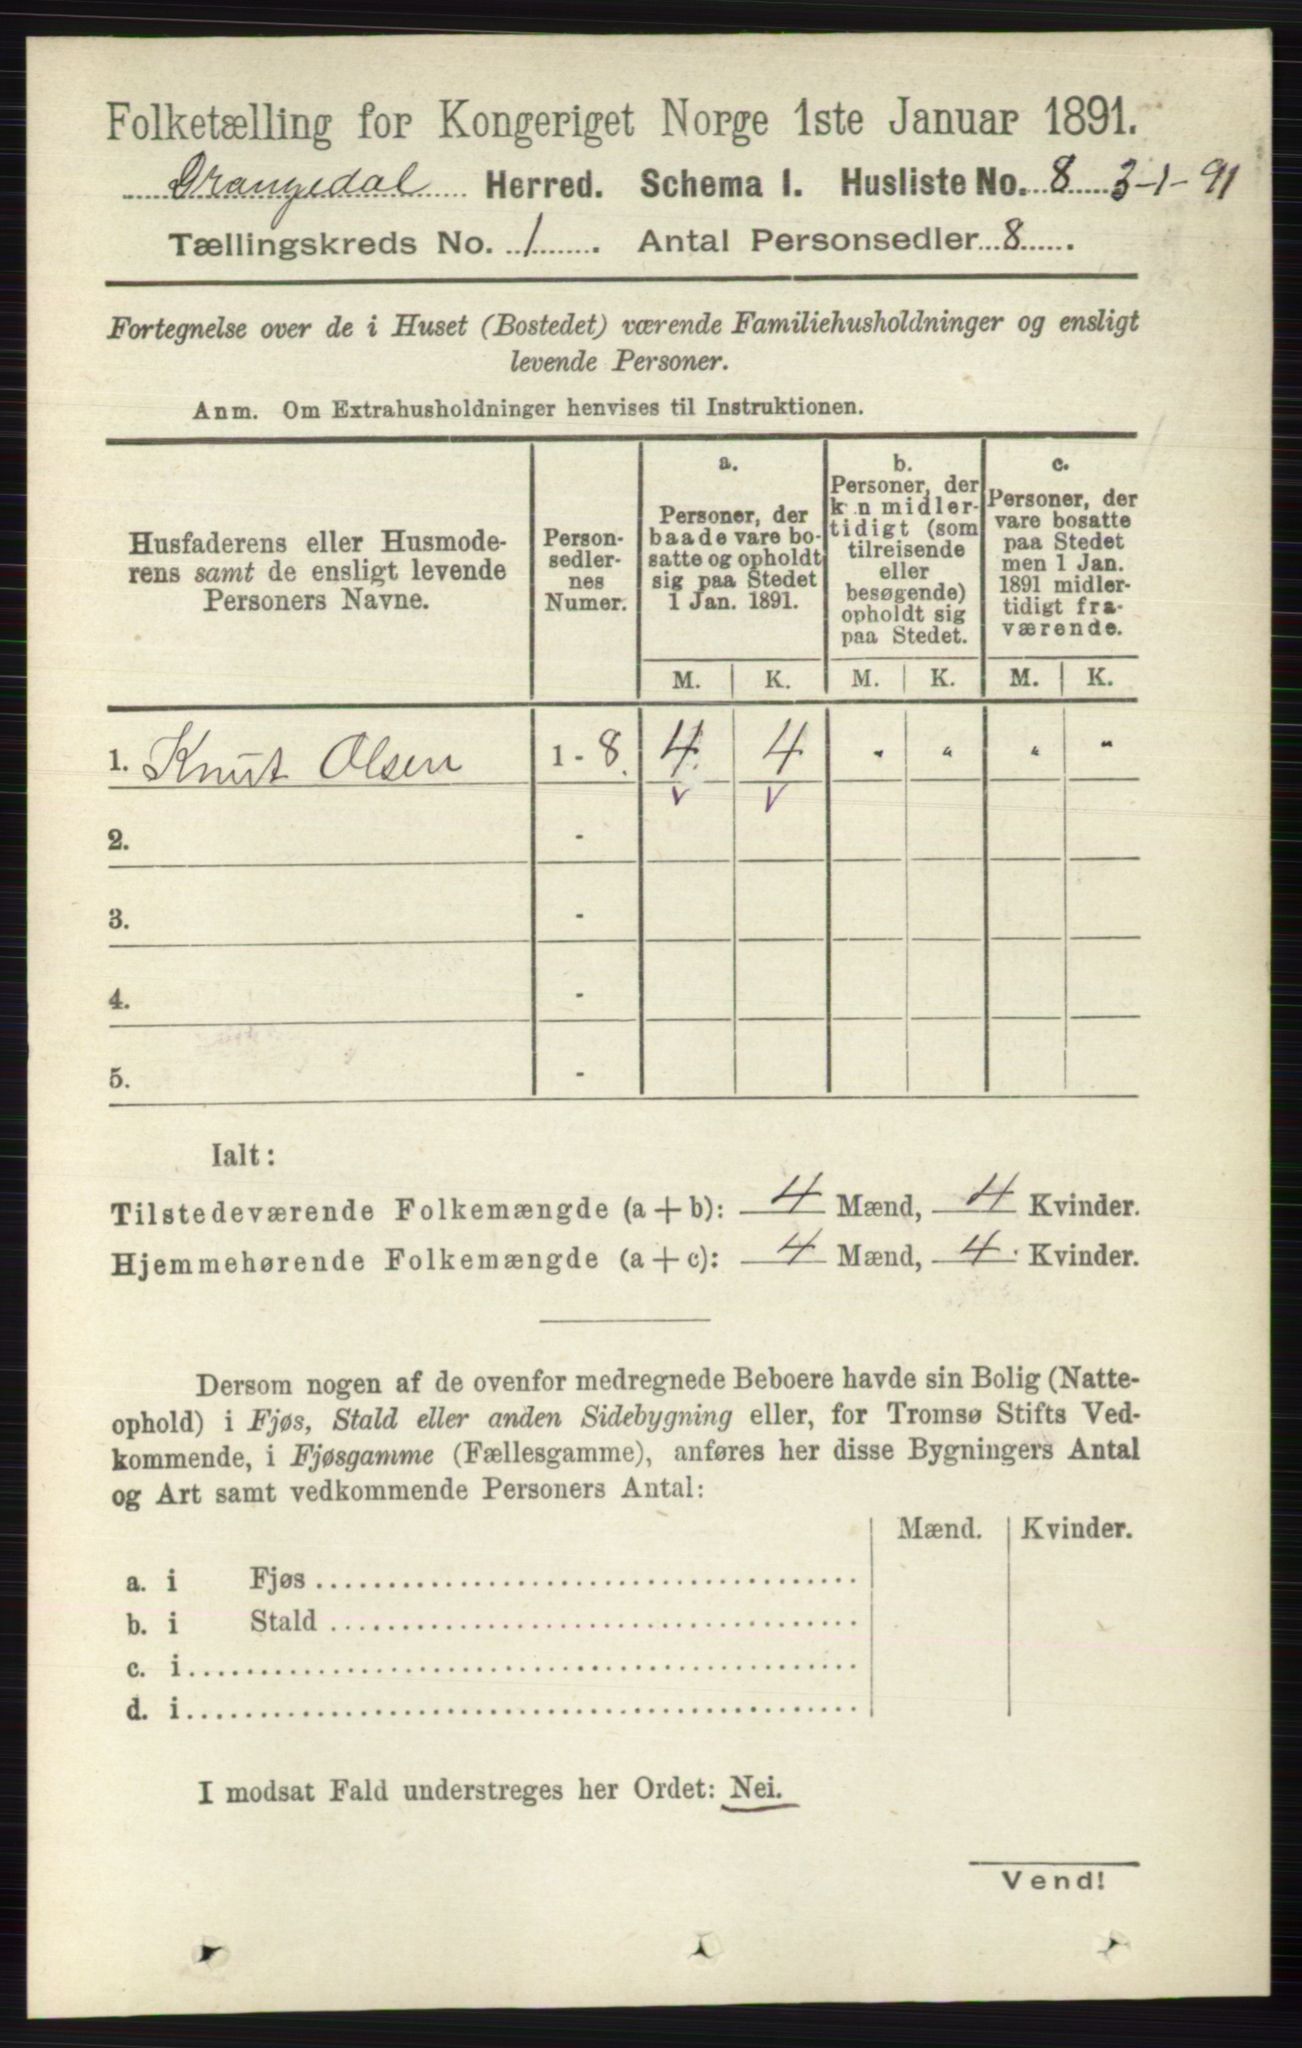 Folketælling for Kongeriget Norge 1ste Januar 1891.
Drangedal Herred. Schema I. Husliste No. 8 3-1-91
Tællingskreds No. 1. Antal Personsedler 8.
Fortegnelse over de i Huset (Bostedet) værende Familiehusholdninger og ensligt
levende Personer.
Anm. Om Extrahusholdninger henvises til Instruktionen.
Husfaderens eller Husmode-
rens samt de ensligt levende
Personers Navne.
Person-
sedler-
nes
Numer.
a.
Personer, der
baade vare bo-
satte og opholdt
sig paa Stedet
1 Jan. 1891.
b.
Personer, der
k n midler-
tidigt (som
tilreisende
eller
besøgende)
opholdt sig
paa Stedet.
c.
Personer, der
vare bosatte
paa Stedet
men 1 Jan.
1891 midler-
tidigt fra-
værende.
M. K. M. K. M. K.
1. Knut Olsen 1 - 8. 4. 4. " " " "
v v
2. -
3. -
4. -
5. -
Ialt:
Tilstedeværende Folkemængde (a + b): 4 Mænd, 4 Kvinder.
Hjemmehørende Folkemængde (a + c): 4 Mænd, 4. Kvinder.
Dersom nogen af de ovenfor medregnede Beboere havde sin Bolig (Natte-
ophold) i Fjøs, Stald eller anden Sidebygning eller, for Tromsø Stifts Ved-
kommende, i Fjøsgamme (Fællesgamme), anføres her disse Bygningers Antal
og Art samt vedkommende Personers Antal:
Mænd. Kvinder.
a. i Fjøs
b. i Stald
c. i
d. i
I modsat Fald understreges her Ordet: Nei.
Vend!